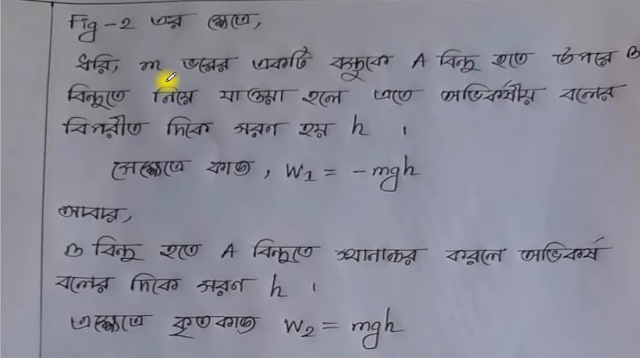 Fig-2 এর ক্ষেত্রে,
ধরি, m ভরের একটি বস্তুকে A বিন্দু হতে উপরে B
বিন্দুতে নিয়ে যাওয়া হলে এতে অভিকর্ষীয় বলের
বিপরীত দিকে সরণ হয় h ।
সেক্ষেত্রে কাজ, W₁ = -mgh
আবার,
B বিন্দু হতে A বিন্দুতে স্থানান্তর করলে অভিকর্ষ
বলের দিকে সরণ h ।
এক্ষেত্রে কৃতকাজ W₂ = mgh